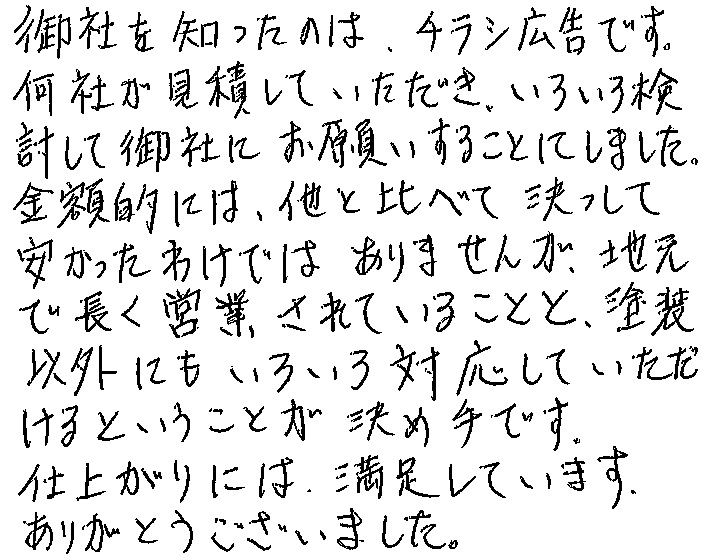 御社を知ったのは、チラシ広告です。
何社か見積していただき、いろいろ検
討して御社にお願いすることにしました。
金額的には、他と比べて決っして
安かったわけではありませんが、地元
で長く営業されていることと、塗装
以外にもいろいろ対応していただ
けるということが決め手です。
仕上がりには、満足しています。
ありがとうございました。